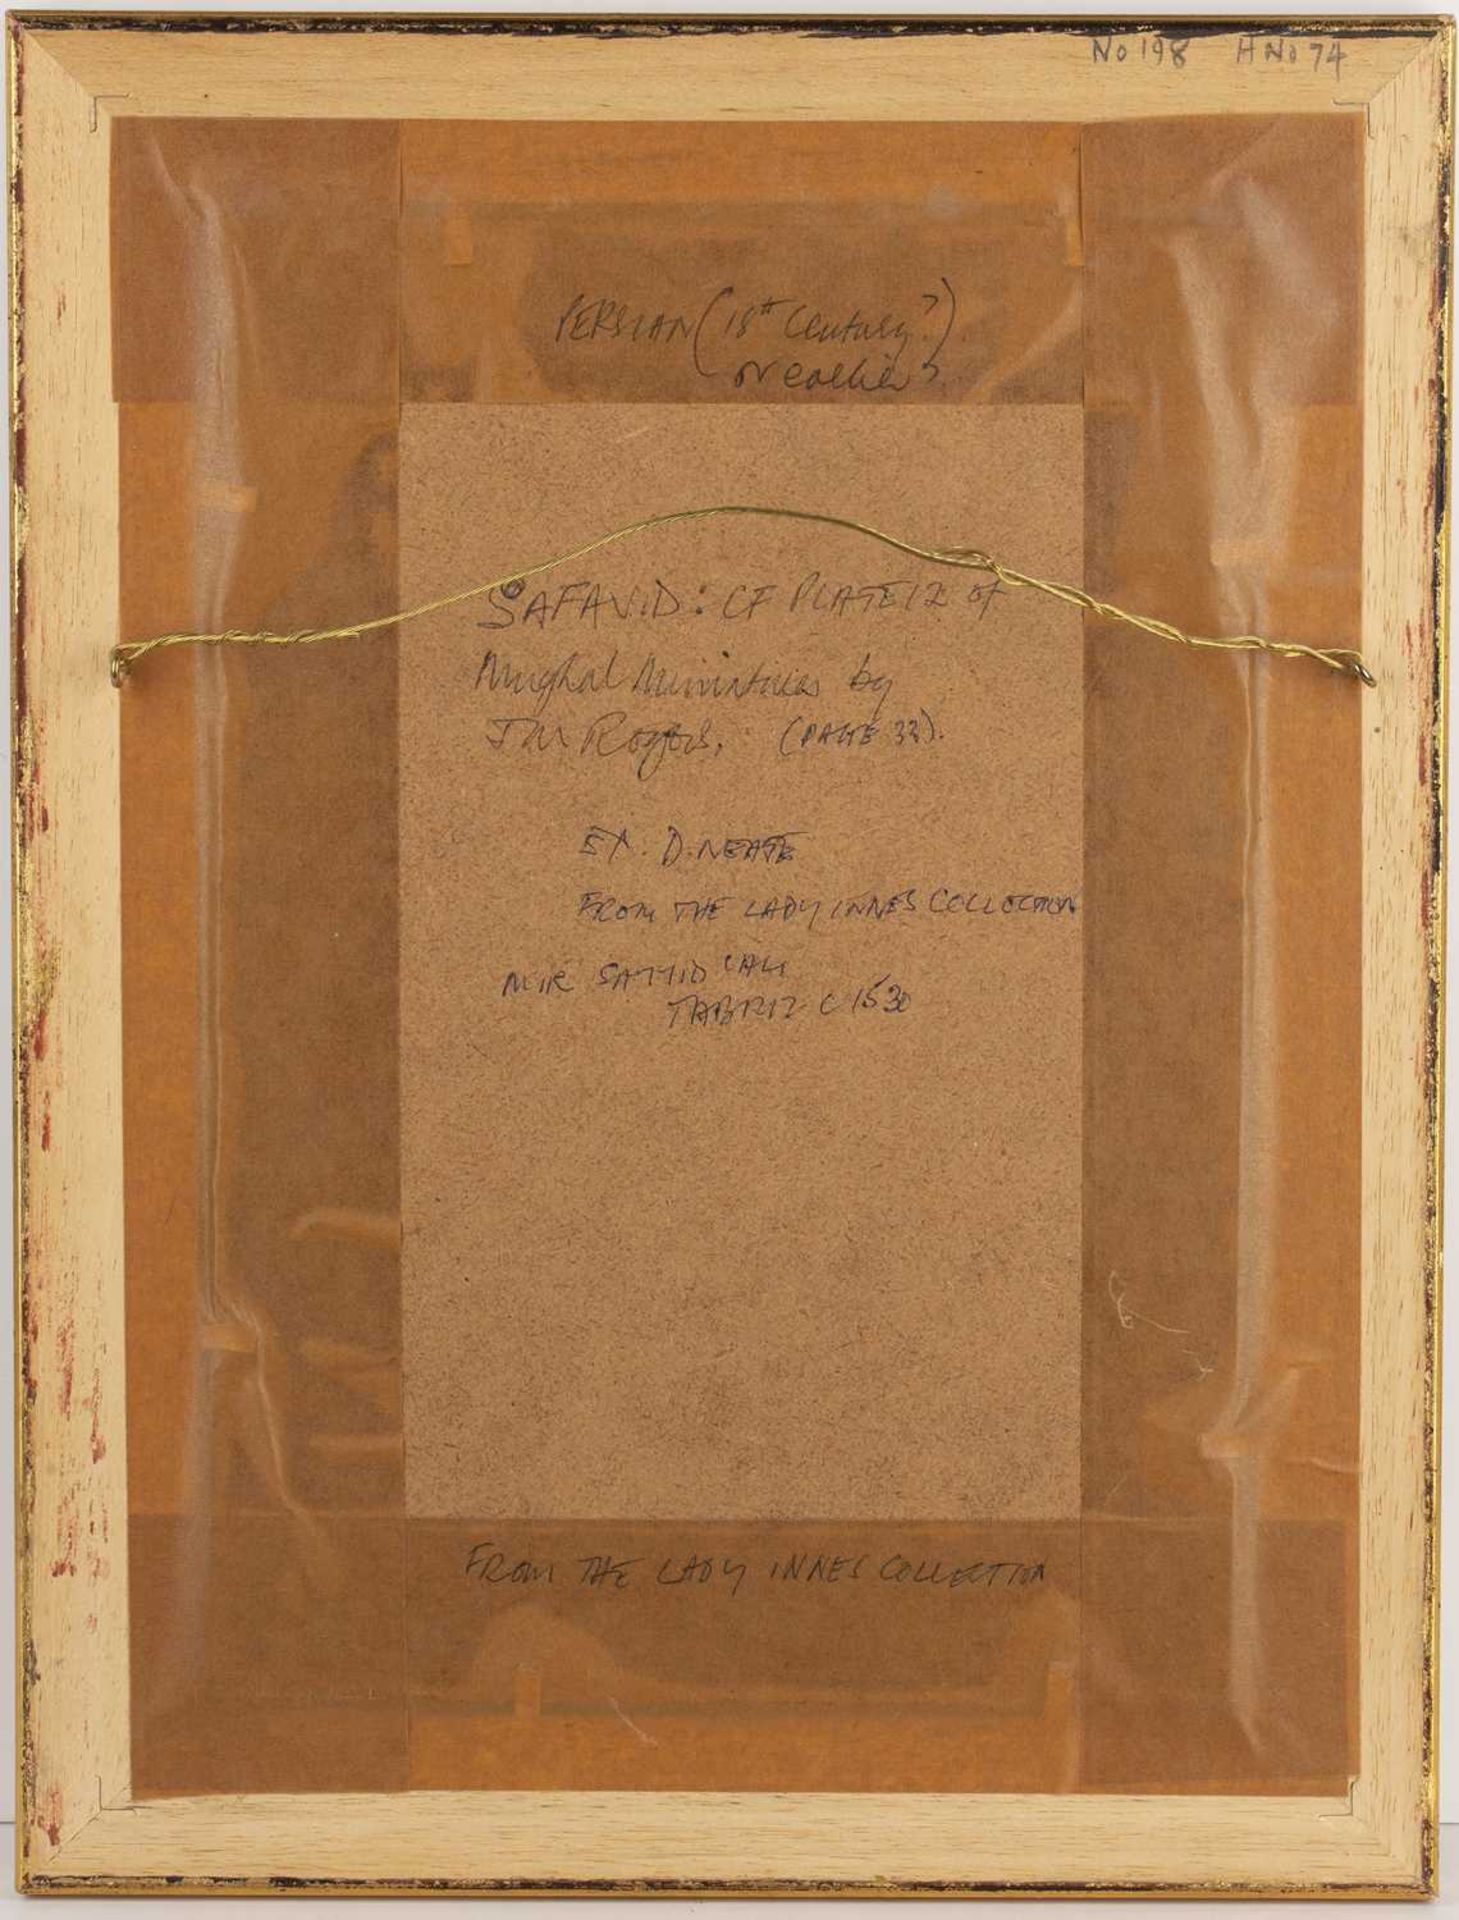 No 198 H No 74
PERSIAN (18th Century?)
or earlier?
SAFAVID: CF PLATE 12 of
Mughal Miniatures by
JM Rogers, (PAGE 32).
EX. D. NEATE
FROM THE LADY INNES COLLECTION
MIR SAYYID 'ALI
TABRIZ C 1530
FROM THE LADY INNES COLLECTION